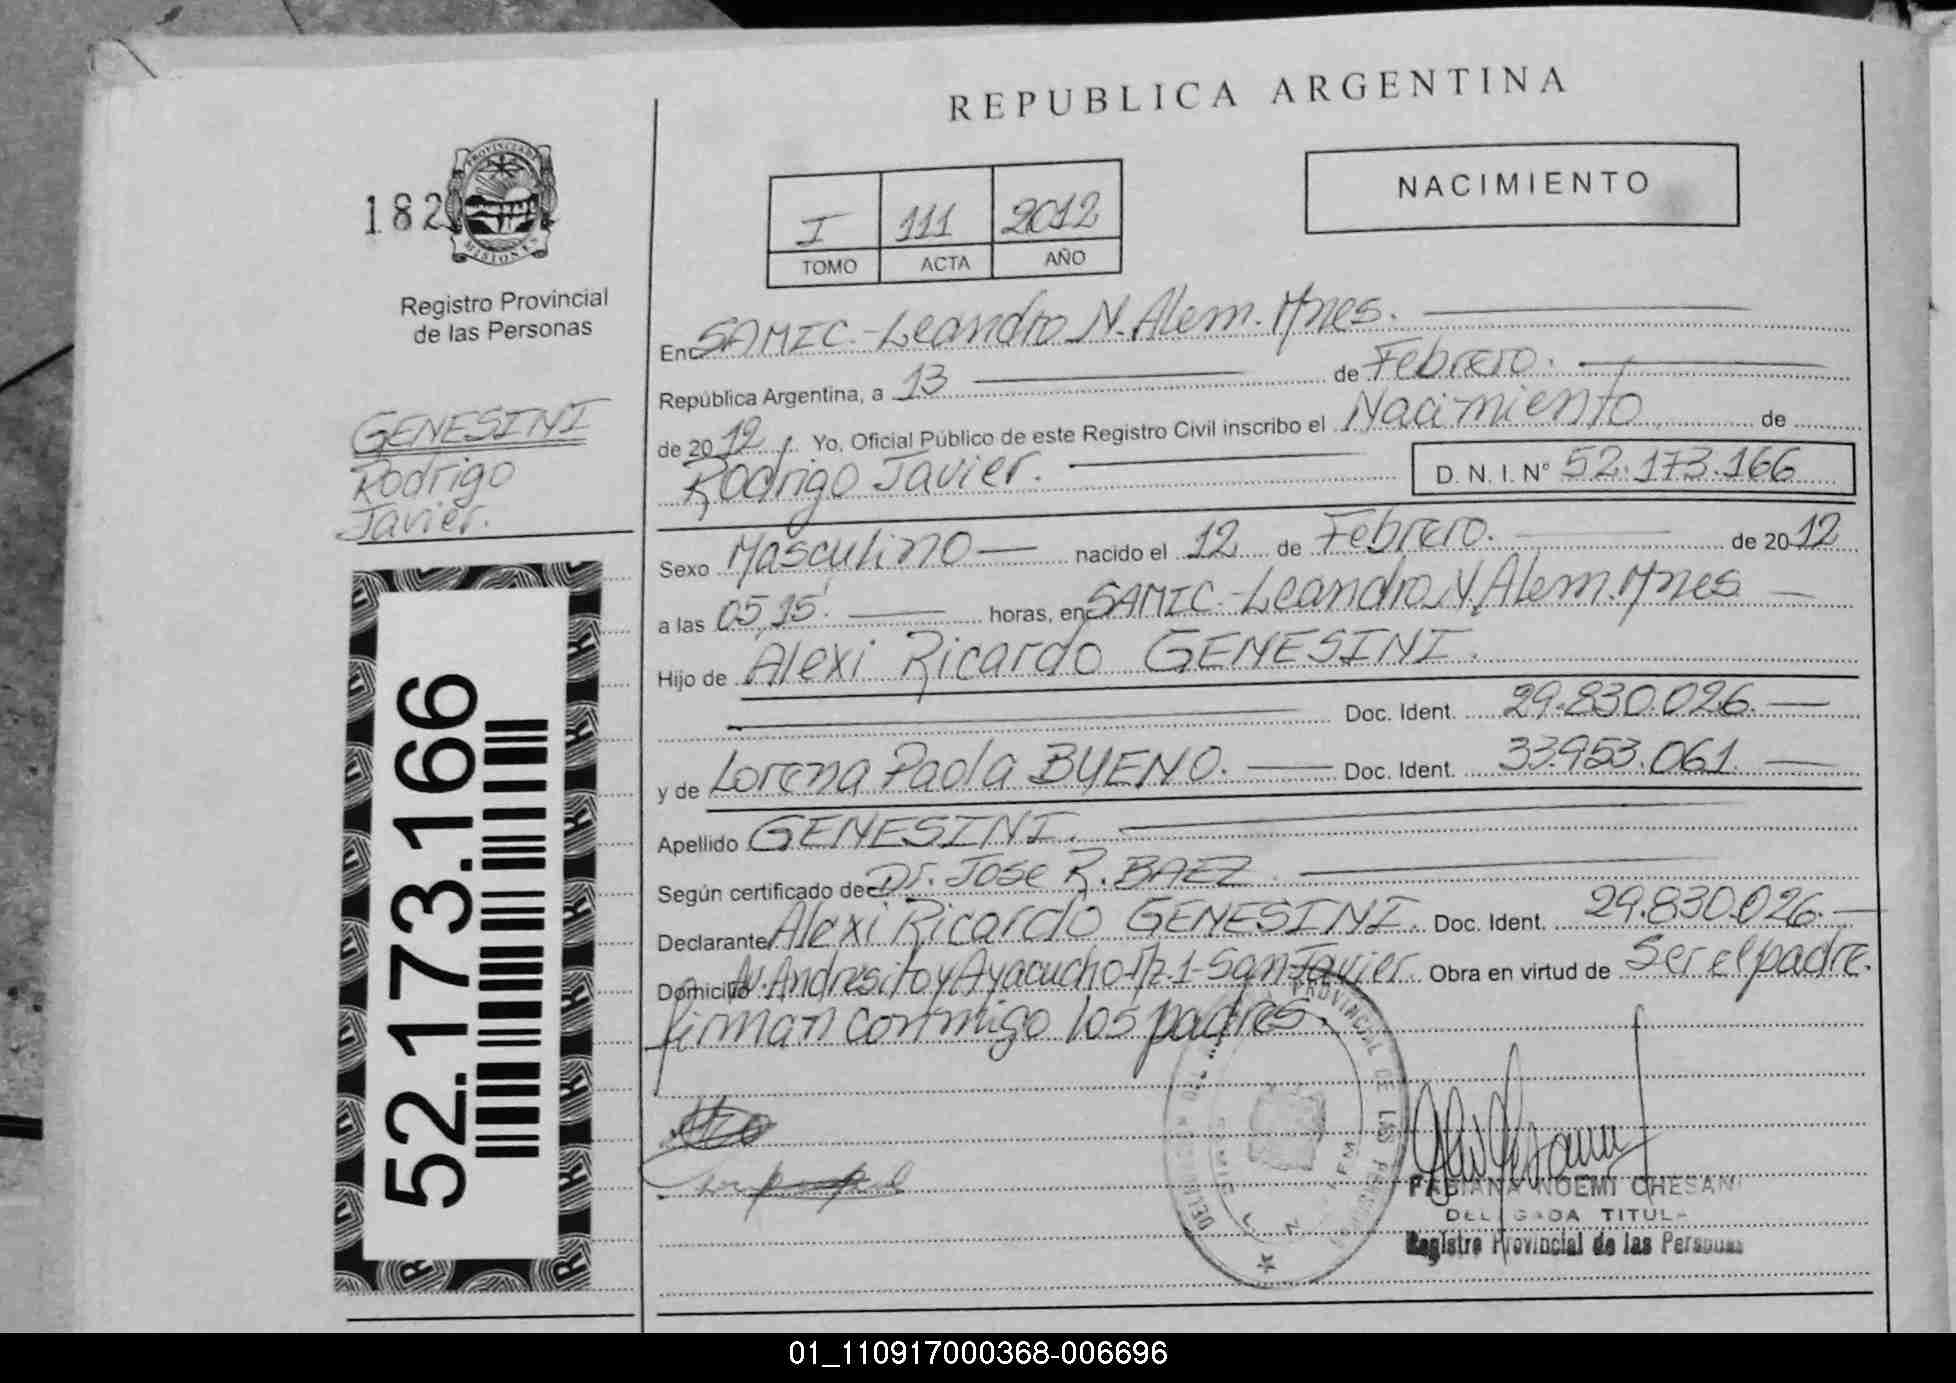 REPUBLICA ARGENTINA
182
PROVINCIA DE
MISIONES
Registro Provincial
de las Personas
I 111 2012
TOMO ACTA AÑO
NACIMIENTO
GENESINI
Rodrigo
Javier.
52.173.166
En SAMIC.-Leandro N. Alem. Mnes.
República Argentina, a 13 de Febrero.
de 2012. Yo, Oficial Público de este Registro Civil inscribo el Nacimiento de
Rodrigo Javier. D. N. I. N° 52.173.166
Sexo Masculino nacido el 12 de Febrero. de 2012
a las 05,15'. horas, en SAMIC.-Leandro N. Alem. Mnes
Hijo de Alexi Ricardo GENESINI.
Doc. Ident. 29.830.026.
y de Lorena Paola BUENO. Doc. Ident. 33.953.061.
Apellido GENESINI.
Según certificado de Dr. Jose R. BAEZ.
Declarante Alexi Ricardo GENESINI. Doc. Ident. 29.830.026.
Domicilio Av. Andresito y Ayacucho Mz. 1-San Javier. Obra en virtud de Ser el padre.
firman conmigo los padres.
PROVINCIAL DE LAS
FABIANA NOEMI CHESANI
DELEGADA TITULAR
Registro Provincial de las Personas
01_110917000368-006696